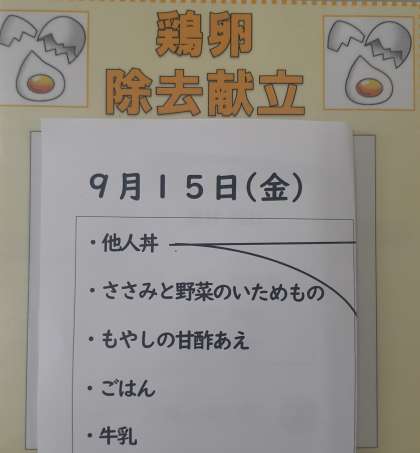 鶏卵
除去献立
9月15日(金)
・他人丼
・ささみと野菜のいためもの
・もやしの甘酢あえ
・ごはん
・牛乳